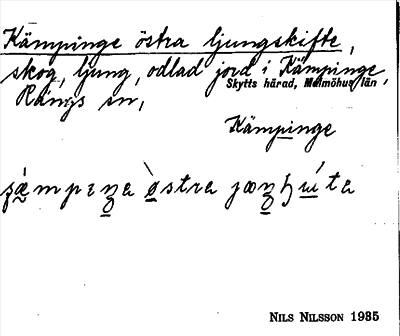 Kämpinge östra ljungskifte,
skog, ljung, odlad jord i Kämpinge,
Skytts härad, Malmöhus län
Rängs sn,
Kämpinge
NILS NILSSON 1935